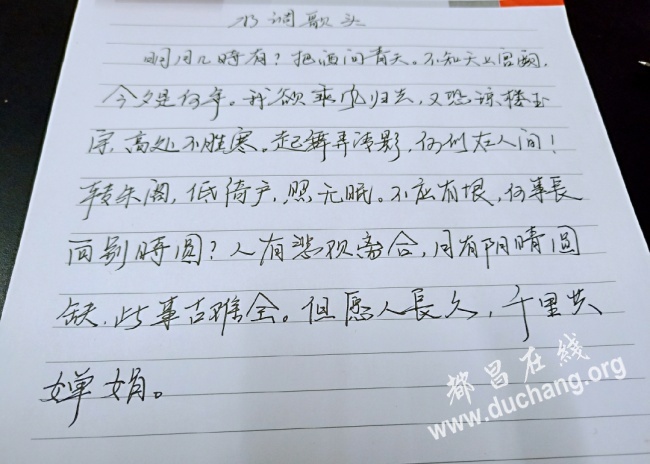 水调歌头
明月几時有？把酒问青天。不知天上宫阙，
今夕是何年。我欲乘风归去，又恐琼楼玉
宇，高处不胜寒。起舞弄清影，何似在人间！
转朱阁，低绮户，照无眠。不应有恨，何事長
向别時圆？人有悲欢离合，月有阴晴圆
缺，此事古难全。但愿人長久，千里共
婵娟。
都昌在线
www.duchang.org